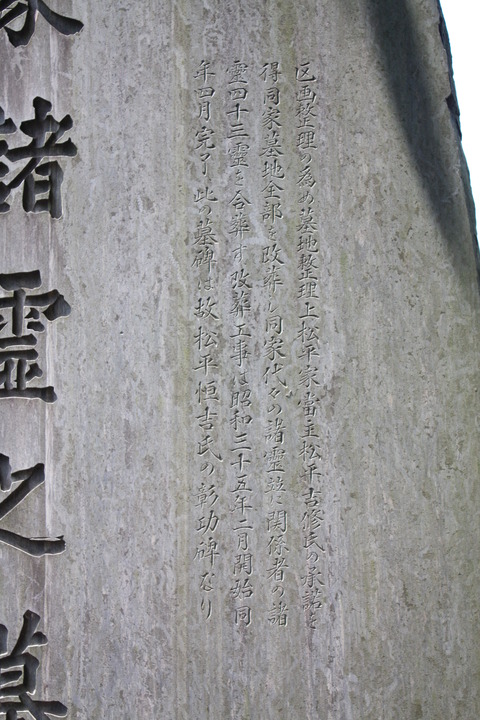 区画整理の為め墓地整理上松平家当主松平吉修氏の承諾を
得同家墓地全部を改葬し同家代々の諸霊並に関係者の諸
霊四十三霊を合葬す改葬工事は昭和三十五年二月開始同
年四月完了此の墓碑は故松平恒吉氏の彰功碑なり
家諸霊之墓